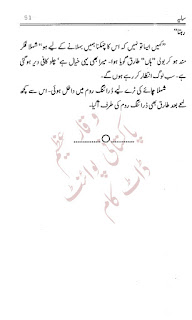 سایہ 51
رہتا"
"کہیں ایسا تو نہیں کہ اس کا چمکنا ہمیں بہلانے کے لیے ہو" شملا فکر
مند ہو کر بولی "ہاں" طارق گویا ہوا۔ میرا بھی یہی خیال ہے' چلو کافی دیر ہو گئی
ہے۔ سب لوگ انتظار کر رہے ہوں گے۔
شملا چائے کی ٹرے لیے ڈرائنگ روم میں داخل ہوئی۔ اس سے کچھ
لمحے بعد طارق بھی ڈرائنگ روم کی طرف آ گیا۔
وقار عظیم
پاکستانی پوائنٹ
ڈاٹ کام